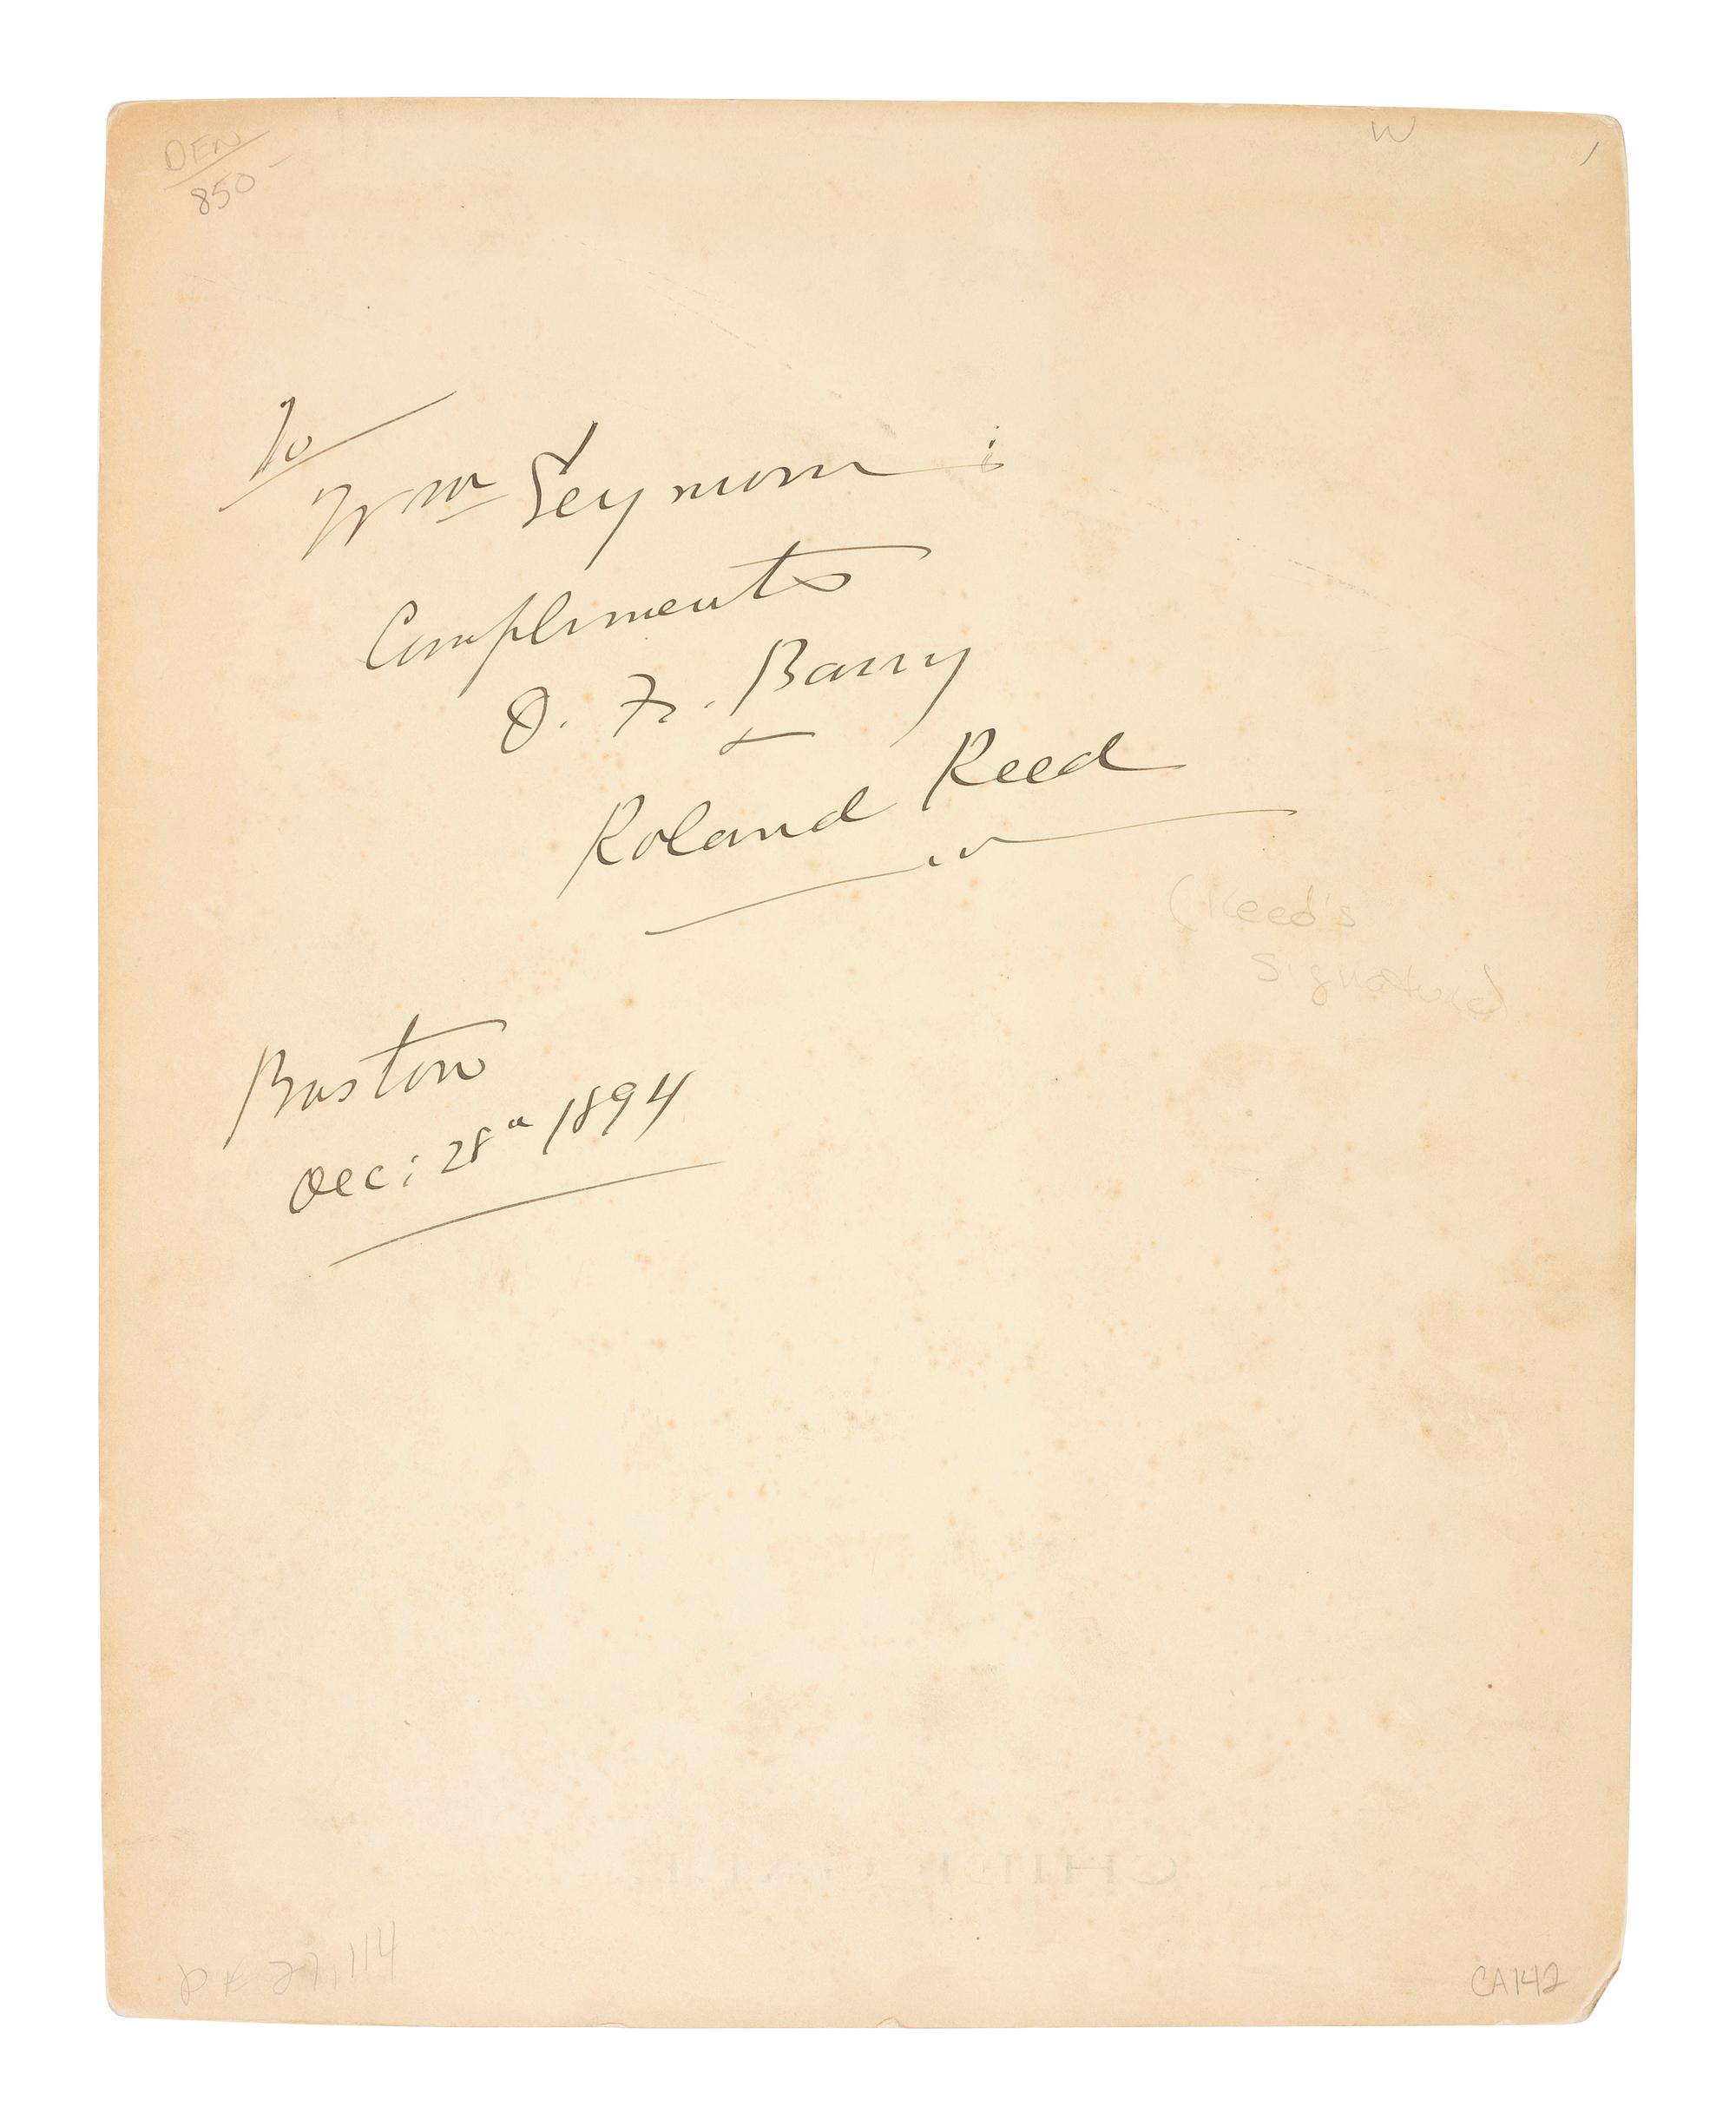 DEN
850-
W
To
Wm Seymour:
Compliments
D. F. Barry
&
Roland Reed
(Reed's
Signature)
Boston
Dec: 28" 1894
CHIEF GALL
27,114
CA142